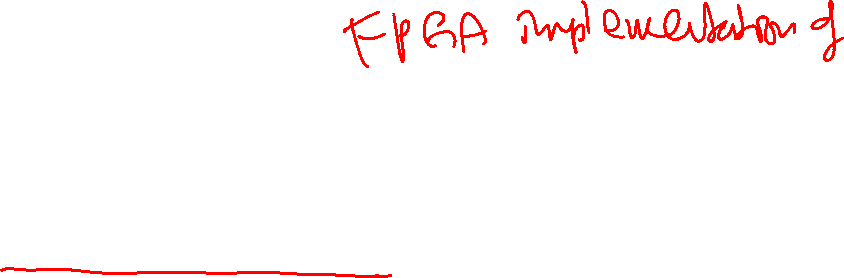 FPGA implementation of